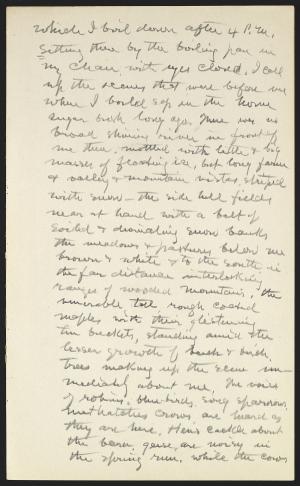 which I boil down after 4 P.M.
Sitting there by the boiling pan in
my chair, with eyes closed, I call
up the scenes that were before me
when I boiled sap in the home
sugar bush long ago. There was no
broad shining river in front of
me then, mottled with little & big
masses of floating ice, but long farm
& valley & mountain vistas, striped
with snow — the side hill fields
near at hand with a belt of
soiled & dwindling snow banks
the meadows & pastures below me
brown & white & to the south in
the far distance interlocking
ranges of wooded mountains, the
venerable tall rough coated
maples with their glistening
tin buckets, standing amid the
lesser growth of beech & birch
trees making up the scene im-
mediately about me. The voices
of robins, blue birds, song sparrows,
nuthatches crows are heard as
they are here. Hens cackle about
the barn, geese are noisy in
the spring run, while the cows